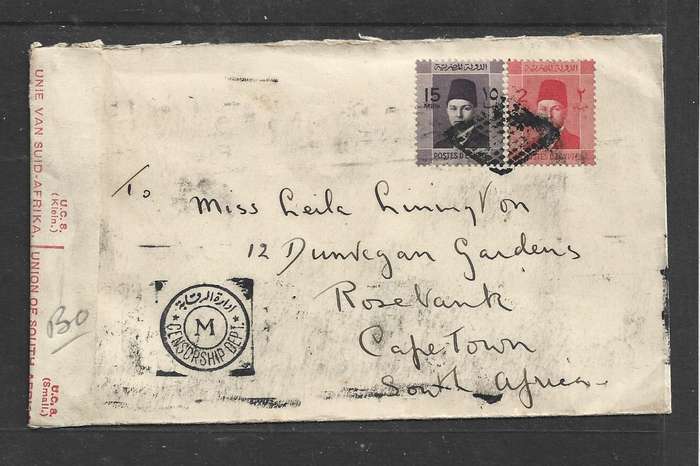 UNIE VAN SUID-AFRIKA.
U.C.S.
(Klein.)
UNION OF SOUTH AFRI
U.C.S.
(Small.)
15
MILLS
١٥
POSTES D'E
2
٢
POSTES D'EGYPTE
To
Miss Leila Linington
12 Dunvegan Gardens
Rosebank
Cape Town
South Africa
ادارة الرقابة
M
CENSORSHIP DEPT.